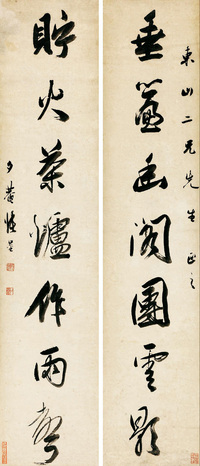 東山二兄先生正之
垂簾幽閣團雲影
貯火茶爐作雨聲
夕菴